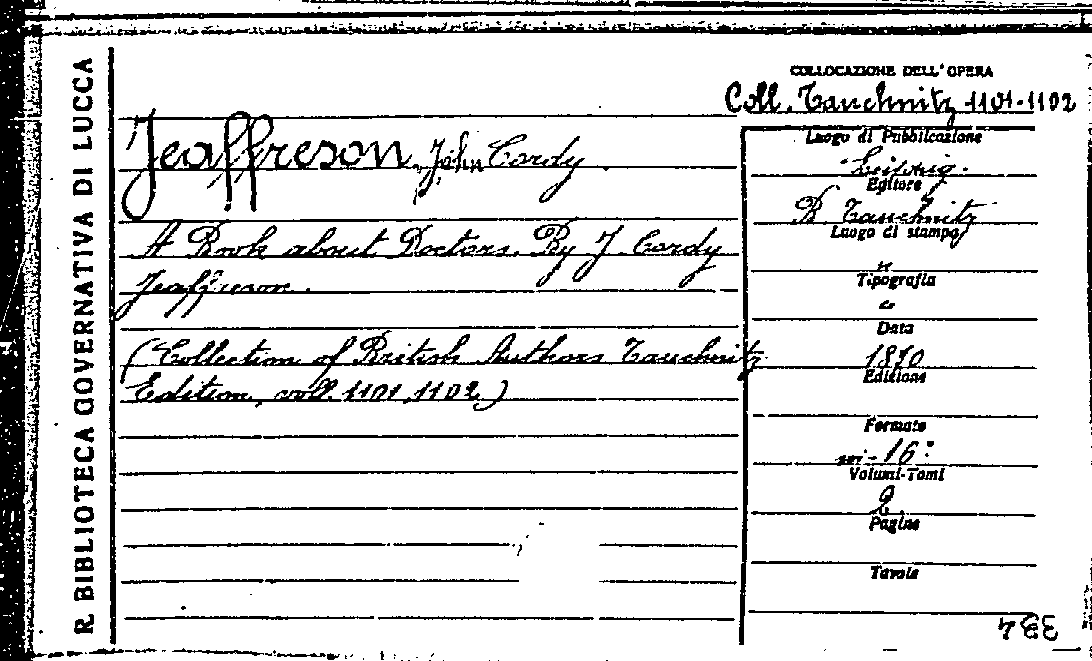 R. BIBLIOTECA GOVERNATIVA DI LUCCA
COLLOCAZIONE DELL'OPERA
Coll. Tauchnitz 1101-1102
Jeaffreson, John Cordy
A Book about Doctors. By J. Cordy
Jeaffreson.
(Collection of British Authors Tauchnitz
Edition, voll. 1101, 1102)
Luogo di Pubblicazione
Leipzig.
Editore
B. Tauchnitz
Luogo di stampa
"
Tipografia
Data
1870
Edizione
Formato
in-16°
Volumi-Tomi
2
Pagine
Tavole
334